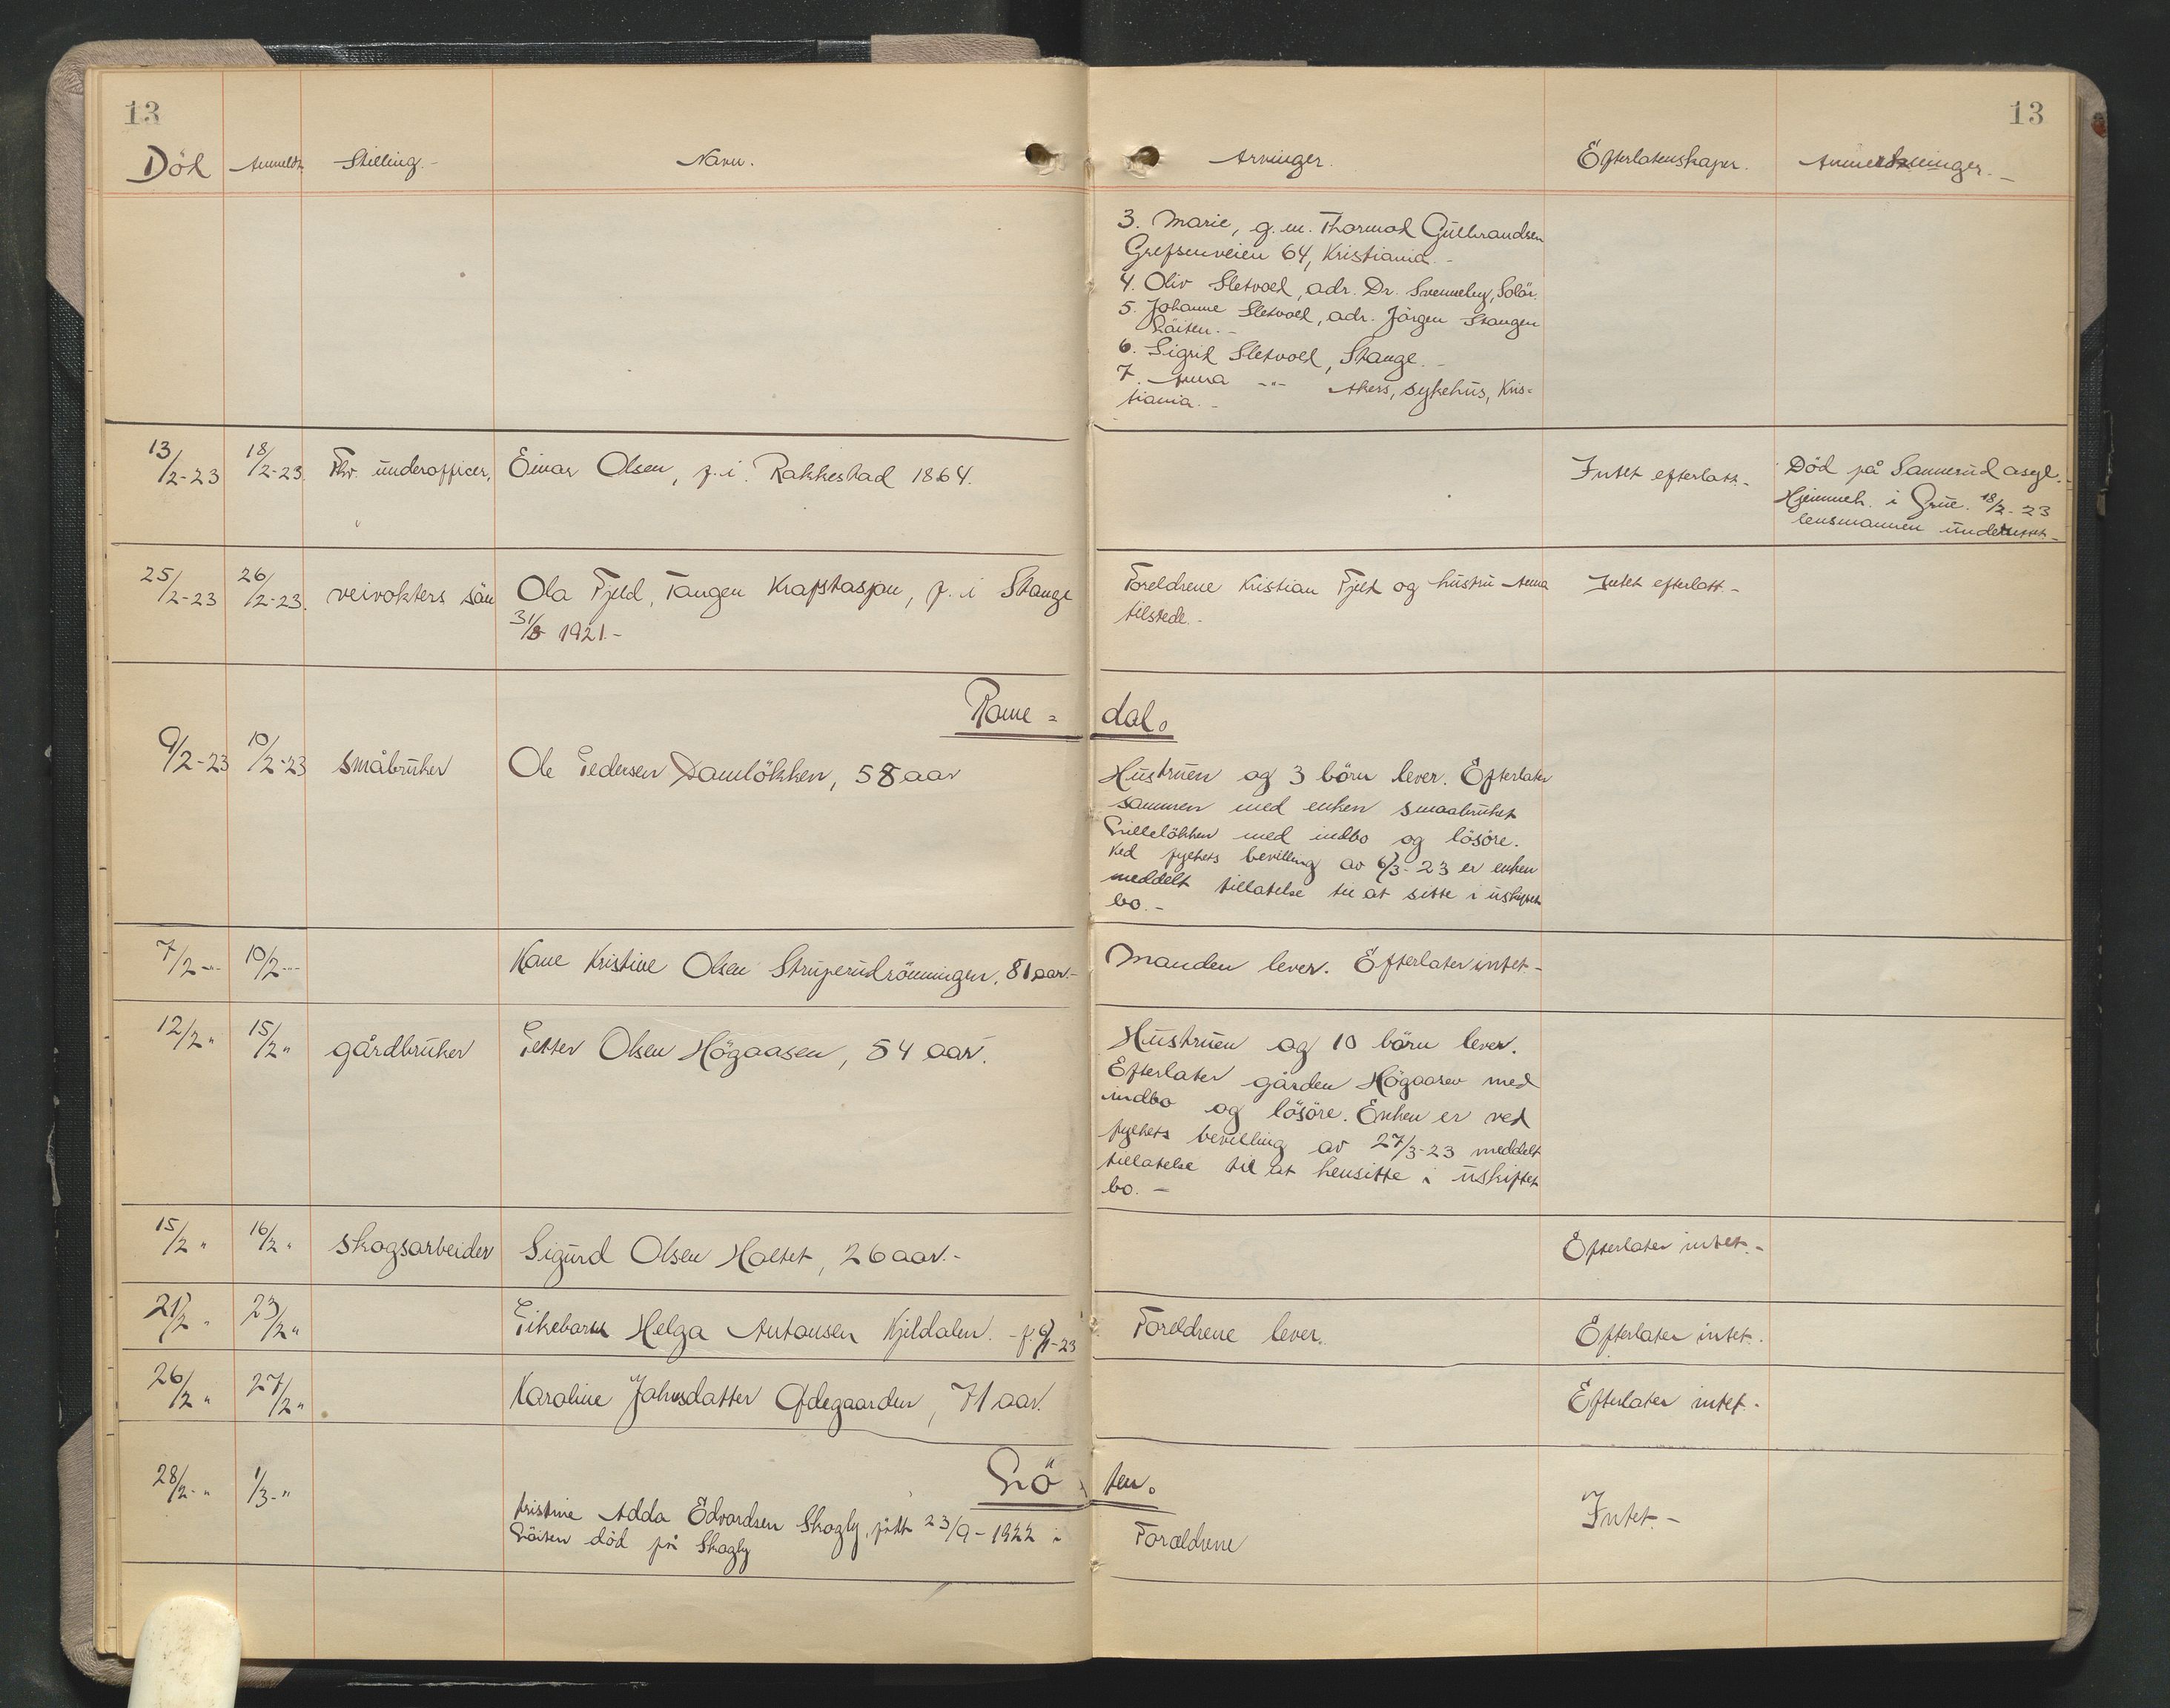 13
13
Död Anmeldt Stilling.- Navn. Arvinger. Efterlatenskaper. Anmerkninger.-
3. Marie, g. m. Thormod Gulbrandsen
Grefsenveien 64, Kristiania.-
4. Oliv Sletvold, adr. Dr. Svenneby, Solör.
5. Johanne Sletvold, adr. Jörgen Stangen
Löiten.-
6. Sigrid Sletvold, Stange.-
7. Anna -"- Akers, sykehus, Kris=
tiania.-
13/2-23 18/2-23. Fhv. underofficer, Einar Olsen, f. i. Rakkestad 1864. Intet efterlatt.- Död på Sannerud asyl.
Hjemmeh. i Grue. 18/2-23
lensmannen underrettet.-
25/2-23 26/2-23. veivokters sön Ola Fjeld, Tangen Krafstasjon, f. i Stange Foreldrene Kristian Fjeld og hustru Anna Intet efterlatt.-
31/8 1921.- tilstede.-
Rome= dal.
9/2-23 10/2-23 småbruker Ole Pedersen Damlökken, 58 aar Hustruen og 3 börn lever. Efterlater
sammen med enken smaabruket
Lillelökken med indbo og lösöre.
Ved fylkets bevilling av 6/3-23 er enken
meddelt tillatelse til at sitte i uskiftet
bo.-
7/2-"- 10/2-"- Kone Kristine Olsen Struperudrönningen, 81 aar.- Manden lever. Efterlater intet-
12/2 " 15/2 " gårdbruker Petter Olsen Högaasen, 54 aar. Hustruen og 10 börn lever.
Efterlater gården Högaasen med
indbo og lösöre. Enken er ved
fylkets bevilling av 27/3-23 meddelt
tillatelse til at hensitte i uskiftet
bo.-
15/2 " 16/2 " skogsarbeider Sigurd Olsen Holtet, 26 aar.- Efterlater intet.-
21/2 " 23/2 " Pikebarn Helga Antonsen Kjeldalen. - f. 6/1-23 Foreldrene lever. Efterlater intet.
26/2 " 27/2 " Karoline Johnsdatter Ödegaarden, 71 aar. Efterlater intet.-
Löi ten.
28/2-" 1/3-" Kristine Adda Edvardsen Skogly, född 23/9-1922 i Foreldrene Intet.-
Löiten död på Skogly